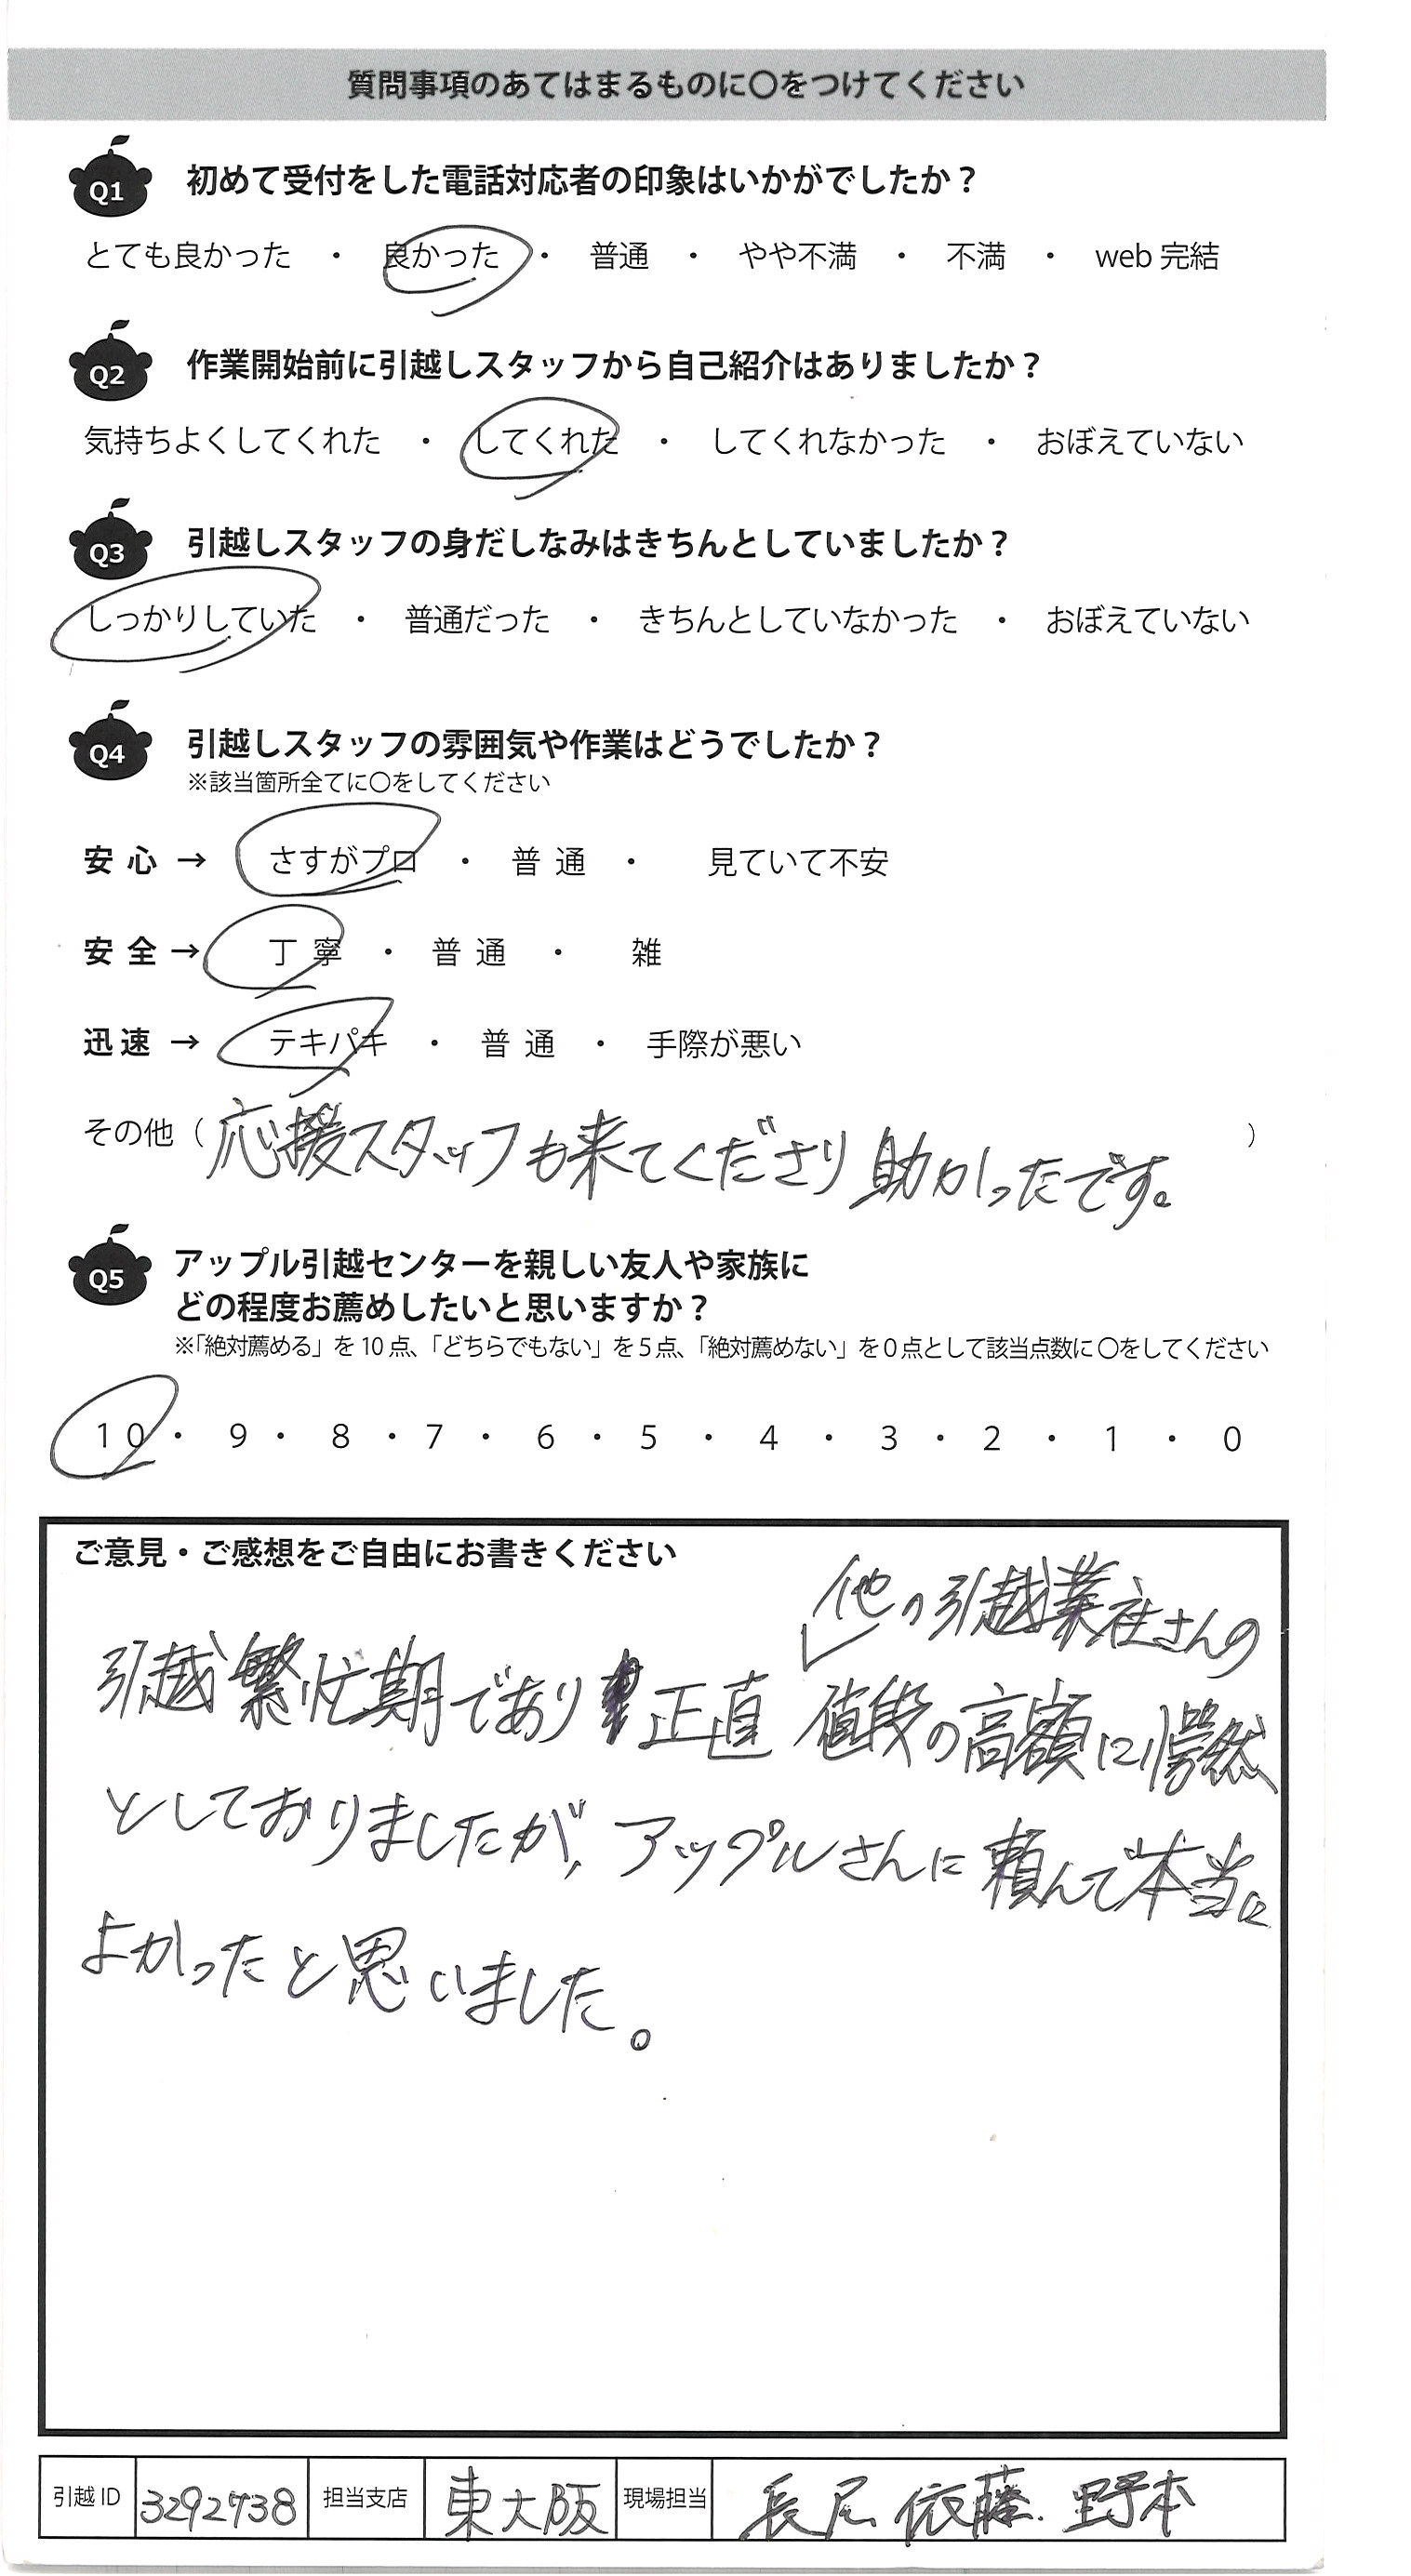 質問事項のあてはまるものに〇をつけてください
Q1 初めて受付をした電話対応者の印象はいかがでしたか？
とても良かった ・ 良かった ・ 普通 ・ やや不満 ・ 不満 ・ web 完結
Q2 作業開始前に引越しスタッフから自己紹介はありましたか？
気持ちよくしてくれた ・ してくれた ・ してくれなかった ・ おぼえていない
Q3 引越しスタッフの身だしなみはきちんとしていましたか？
しっかりしていた ・ 普通だった ・ きちんとしていなかった ・ おぼえていない
Q4 引越しスタッフの雰囲気や作業はどうでしたか？
※該当箇所全てに〇をしてください
安心 → さすがプロ ・ 普通 ・ 見ていて不安
安全 → 丁寧 ・ 普通 ・ 雑
迅速 → テキパキ ・ 普通 ・ 手際が悪い
その他（ 応援スタッフも来てくださり助かったです。 ）
Q5 アップル引越センターを親しい友人や家族に
どの程度お薦めしたいと思いますか？
※「絶対薦める」を 10 点、「どちらでもない」を 5 点、「絶対薦めない」を 0 点として該当点数に 〇をしてください
10 ・ 9 ・ 8 ・ 7 ・ 6 ・ 5 ・ 4 ・ 3 ・ 2 ・ 1 ・ 0
ご意見・ご感想をご自由にお書きください
他の引越業社さんの
引越繁忙期であり 正直 値段の高額に愕然
としておりましたが、アップルさんに頼んで本当に
よかったと思いました。
引越 ID 3292738 担当支店 東大阪 現場担当 長尾 依藤. 野本